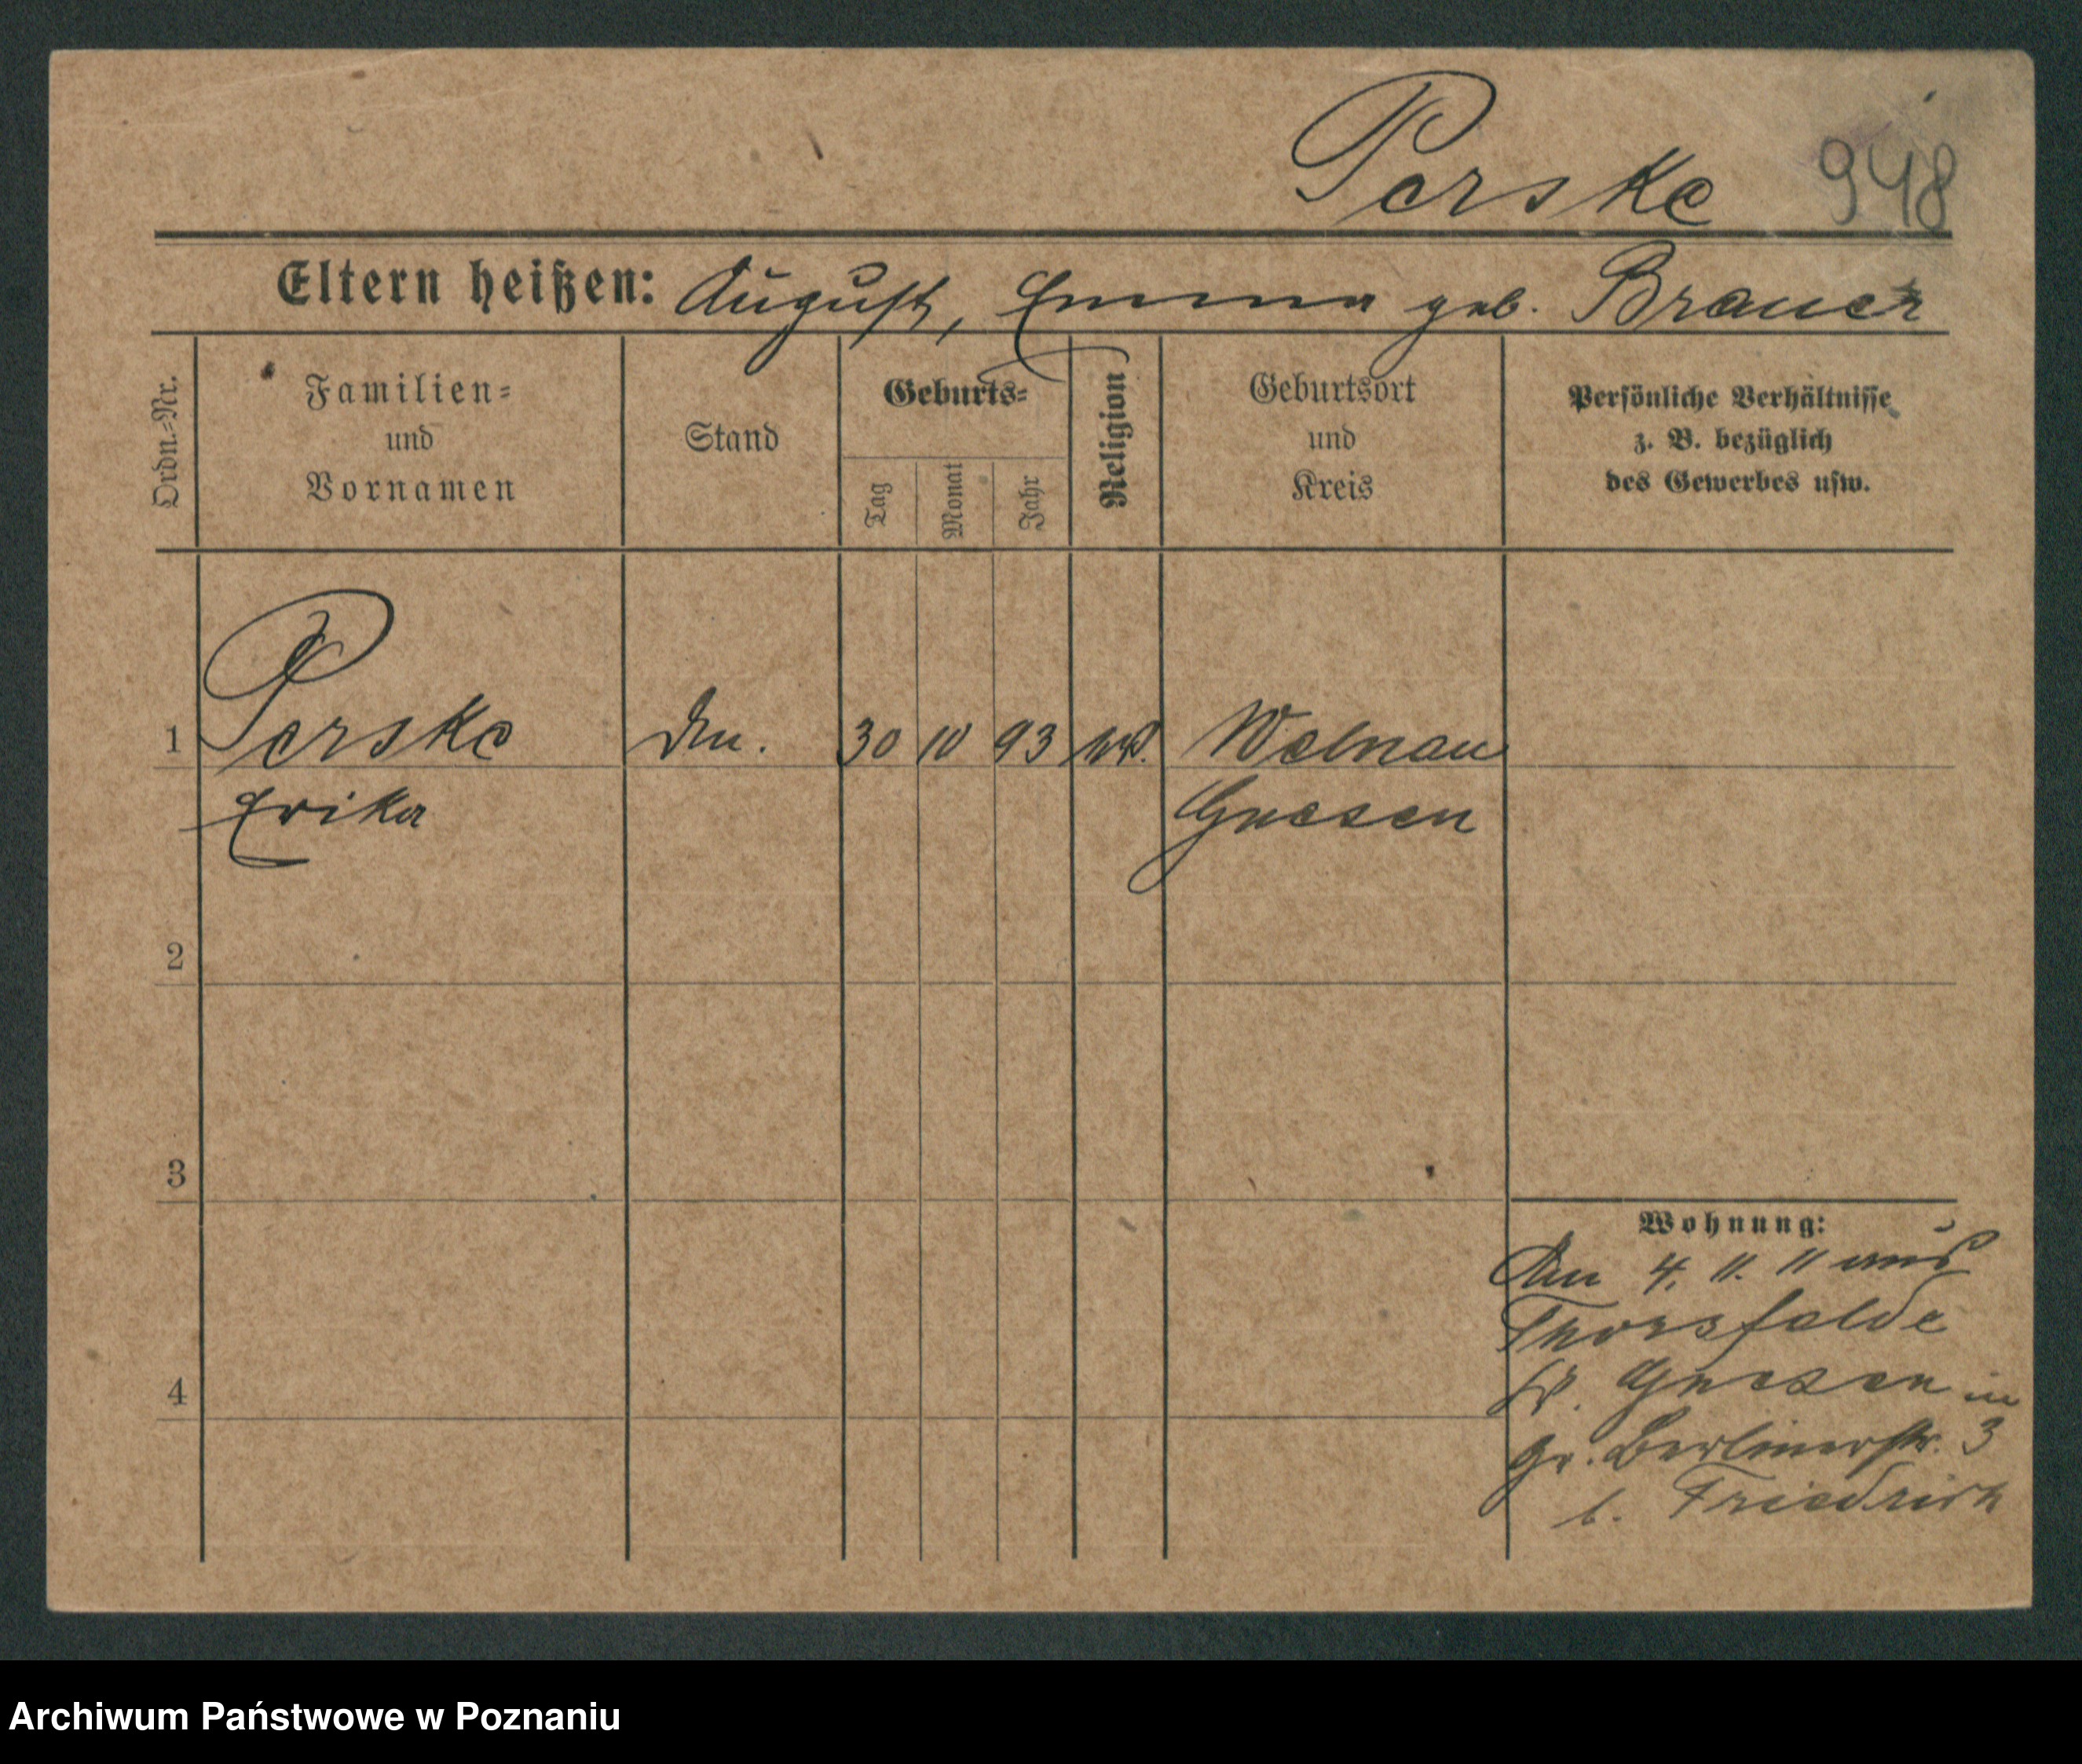 Perske 948
Eltern heißen: August, Emma geb. Brauer
Ordn.-Nr.
Familien-
und
Vornamen
Stand
Geburts-
Tag
Monat
Jahr
Religion
Geburtsort
und
Kreis
Persönliche Verhältnisse
z. B. bezüglich
des Gewerbes usw.
1 Perske 30 10 93 Welnau
Erika Gnesen
2
3
4
Wohnung:
4. 11. 11 aus
Thorsfelde
Gnesen in
Gr. Berlinerstr. 3
b. Friedrich
Archiwum Państwowe w Poznaniu